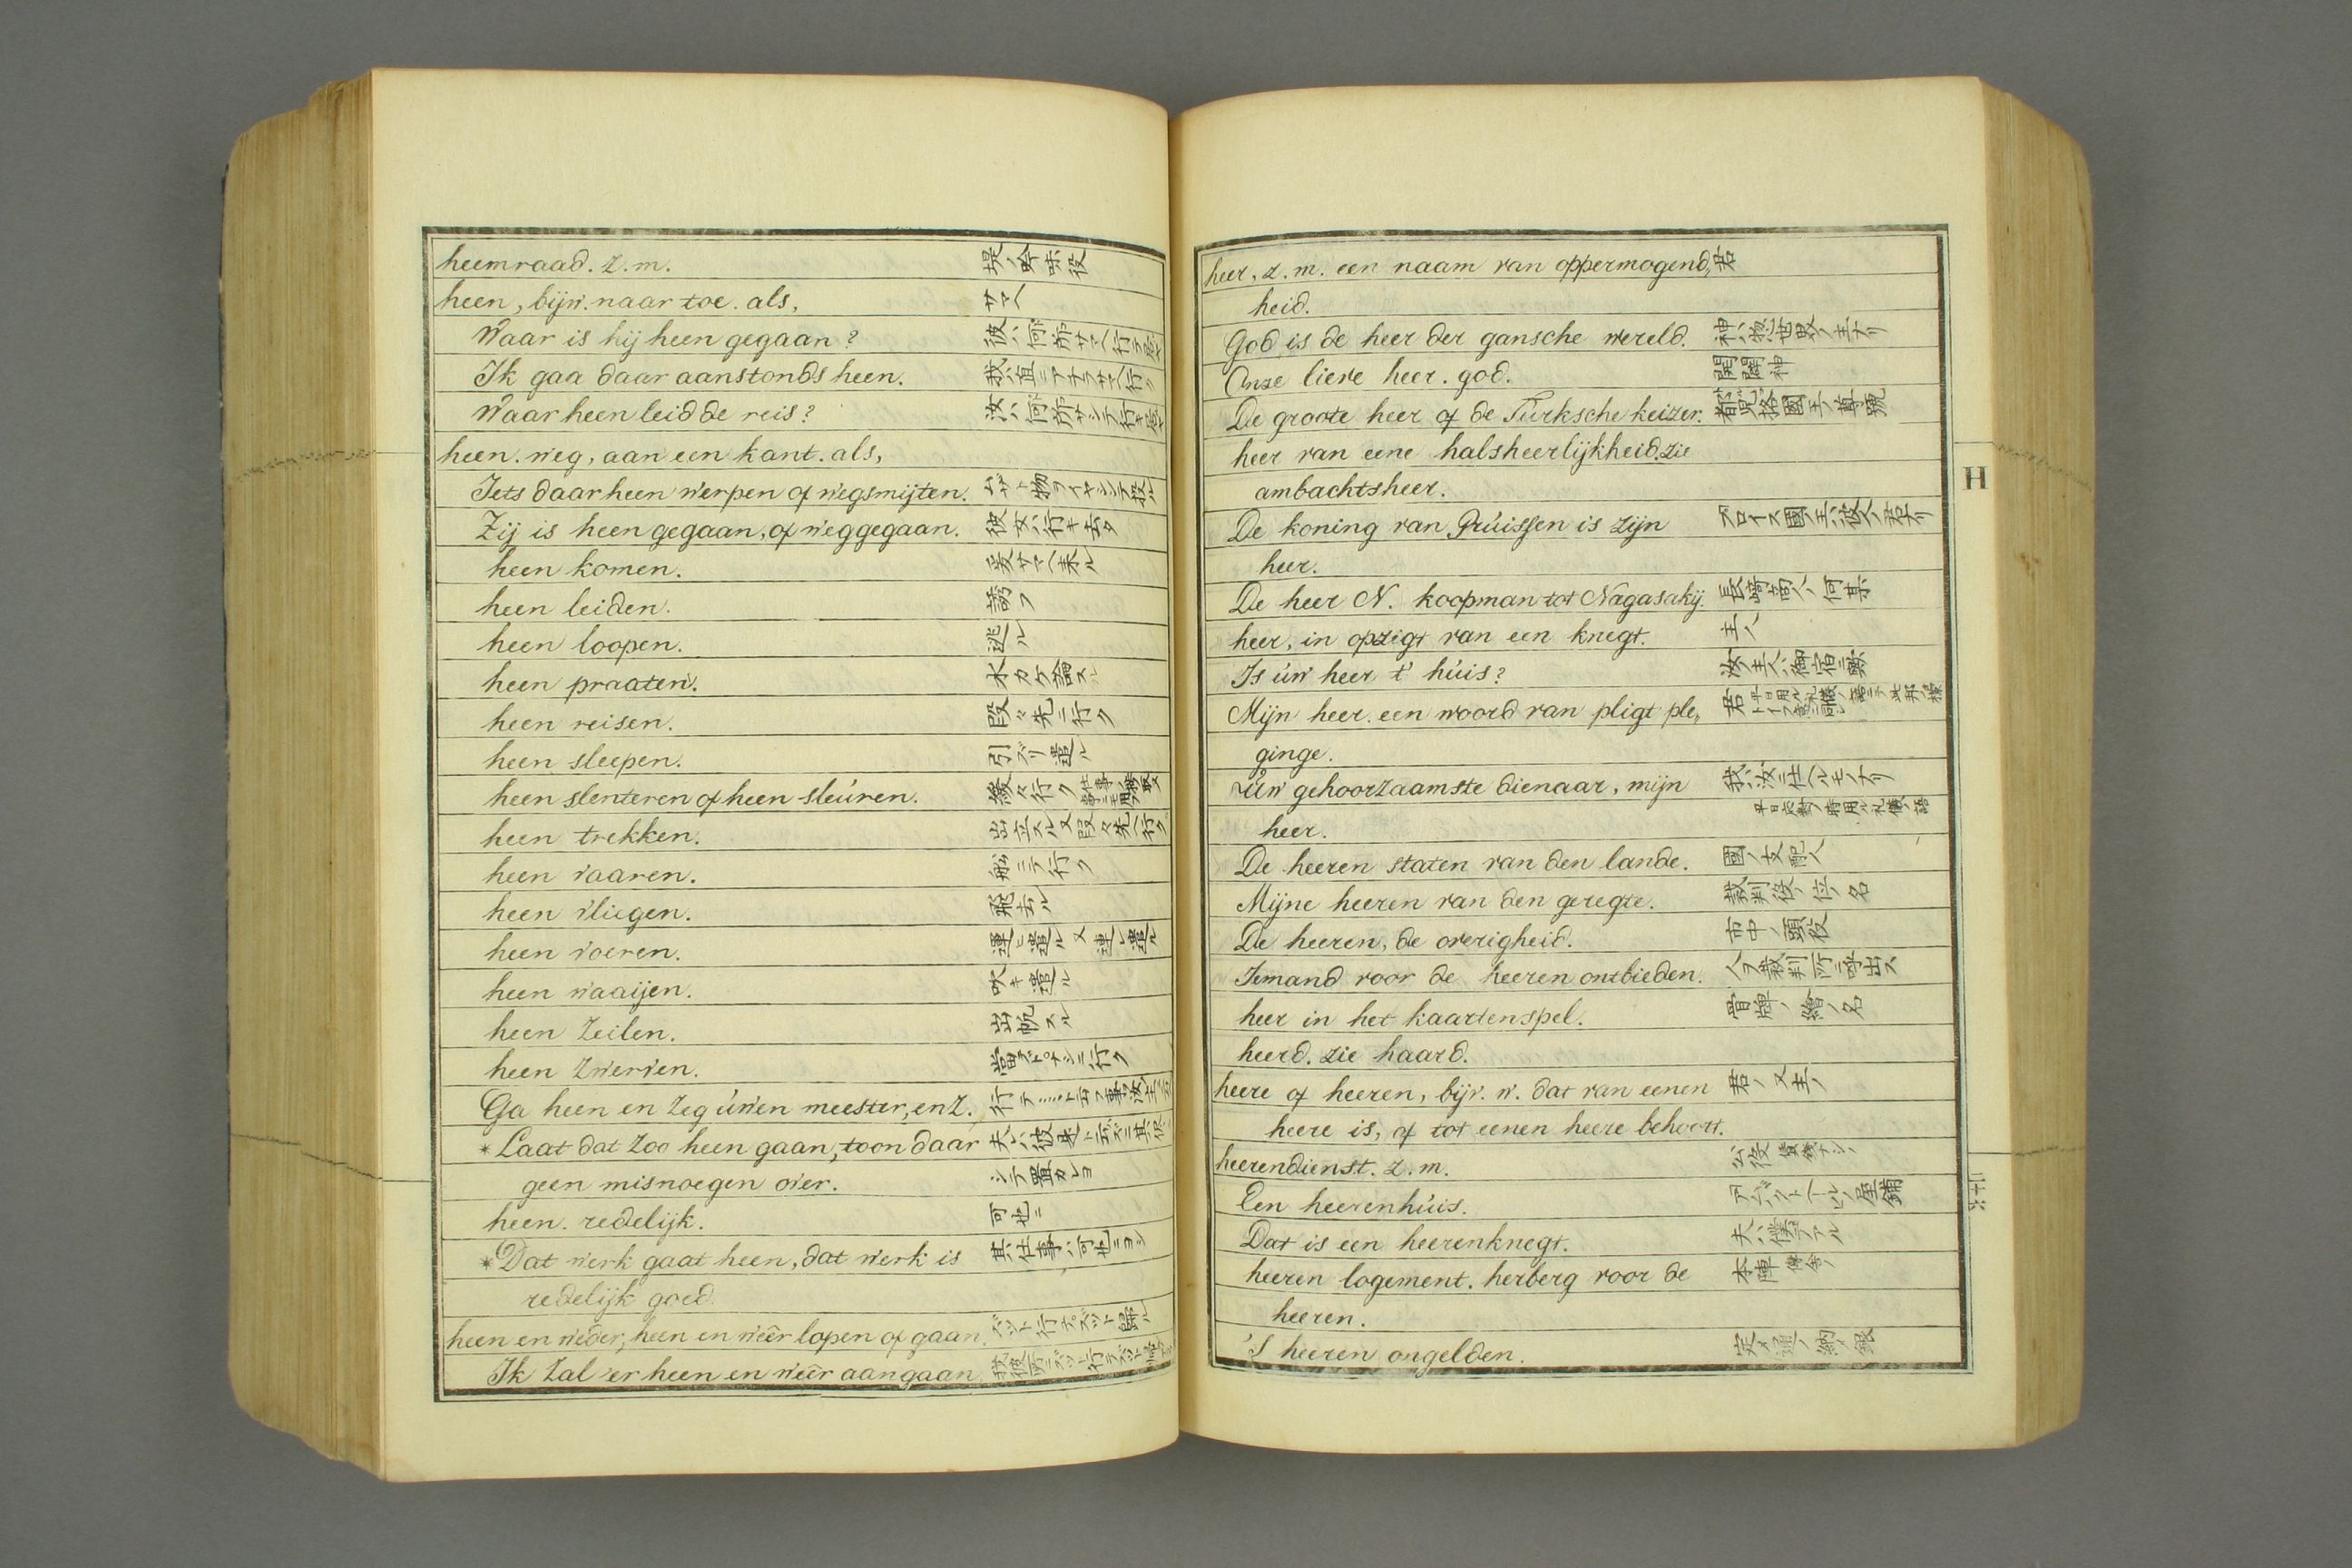 heemraad. z. m. 堤ノ吟味役
heen, bijw. naar toe. als, サマヘ
Waar is hij heen gegaan? 彼ハ何所サマヘ行
Ik gaa daar aanstonds heen. 我ハ直ニアチラサマヘ行ク
Waar heen leid de reis? 汝ハ何所サシテ行
heen. weg, aan een kant. als,
Iets daar heen werpen of wegsmijten.
Zij is heen gegaan, of weggegaan. 彼女ハ行キ去タ
heen komen. 爰サマヘ来ル
heen leiden. 誘フ
heen loopen. 逃ル
heen praaten. 水カケ論スル
heen reisen. 段々先ニ行ク
heen sleepen. 引ズリ遣ル
heen slenteren of heen sleúren. 緩々行ク
heen trekken. 出立スル又段々先ヘ行ク
heen vaaren. 舩ニテ行ク
heen vliegen. 飛去ル
heen voeren. 運ヒ遣ル又連レ遣ル
heen waaijen. 吹キ遣ル
heen zeilen. 出帆スル
heen zwerven. 當ドナシニ行ク
Ga heen en zeg úwen meester, enz.
* Laat dat zoo heen gaan, toon daar
geen misnoegen over. シテ置カレヨ
heen. redelijk. 可也ニ
* Dat werk gaat heen, dat werk is 其仕事ハ可也ニヨシ
redelijk goed.
heen en weder, heen en weêr lopen of gaan. ズット行テズット歸ル
Ik zal er heen en weêr aangaan.
heer, z. m. een naam van oppermogend, 君
heid.
God is de heer der gansche wereld. 神ハ惣世界ノ主ナリ
Onze lieve heer. god. 開闢神
De groote heer of de Túrksche keizer. 都兒格國王ノ尊號
heer van eene halsheerlijkheid. zie
ambachtsheer.
De koning van Prúissen is zijn プロイス國ノ王ハ彼人ノ君ナリ
heer.
De heer N. koopman tot Nagasakij. 長崎商人ノ何某
heer, in opzigt van een knegt. 主人
Is úw heer t' húis? 汝ノ主人ハ御宿ニ歟
Mijn heer. een woord van pligt ple, 君
ginge.
Úw gehoorzaamste dienaar, mijn 我ハ汝ニ仕ヘルモノナリ
heer.
De heeren staten van den lande. 國ノ支配人
Mijne heeren van den geregte. 裁判役ノ位ノ名
De heeren, de overigheid. 市中ノ頭役
Iemand voor de heeren ontbieden. 人ヲ裁判所ニ呼出ス
heer in het kaartenspel. 骨牌ノ繪ノ名
heerd. zie haard.
heere of heeren, bijv. w. dat van eenen 君ノ又主ノ
heere is, of tot eenen heere behoort.
heerendienst. z. m. 公役
Een heerenhúis.
Dat is een heerenknegt. 夫ハ僕デアル
heeren logement. herberg voor de 本陣
heeren.
's heeren ongelden. 定メ通ノ納ノ銀
H